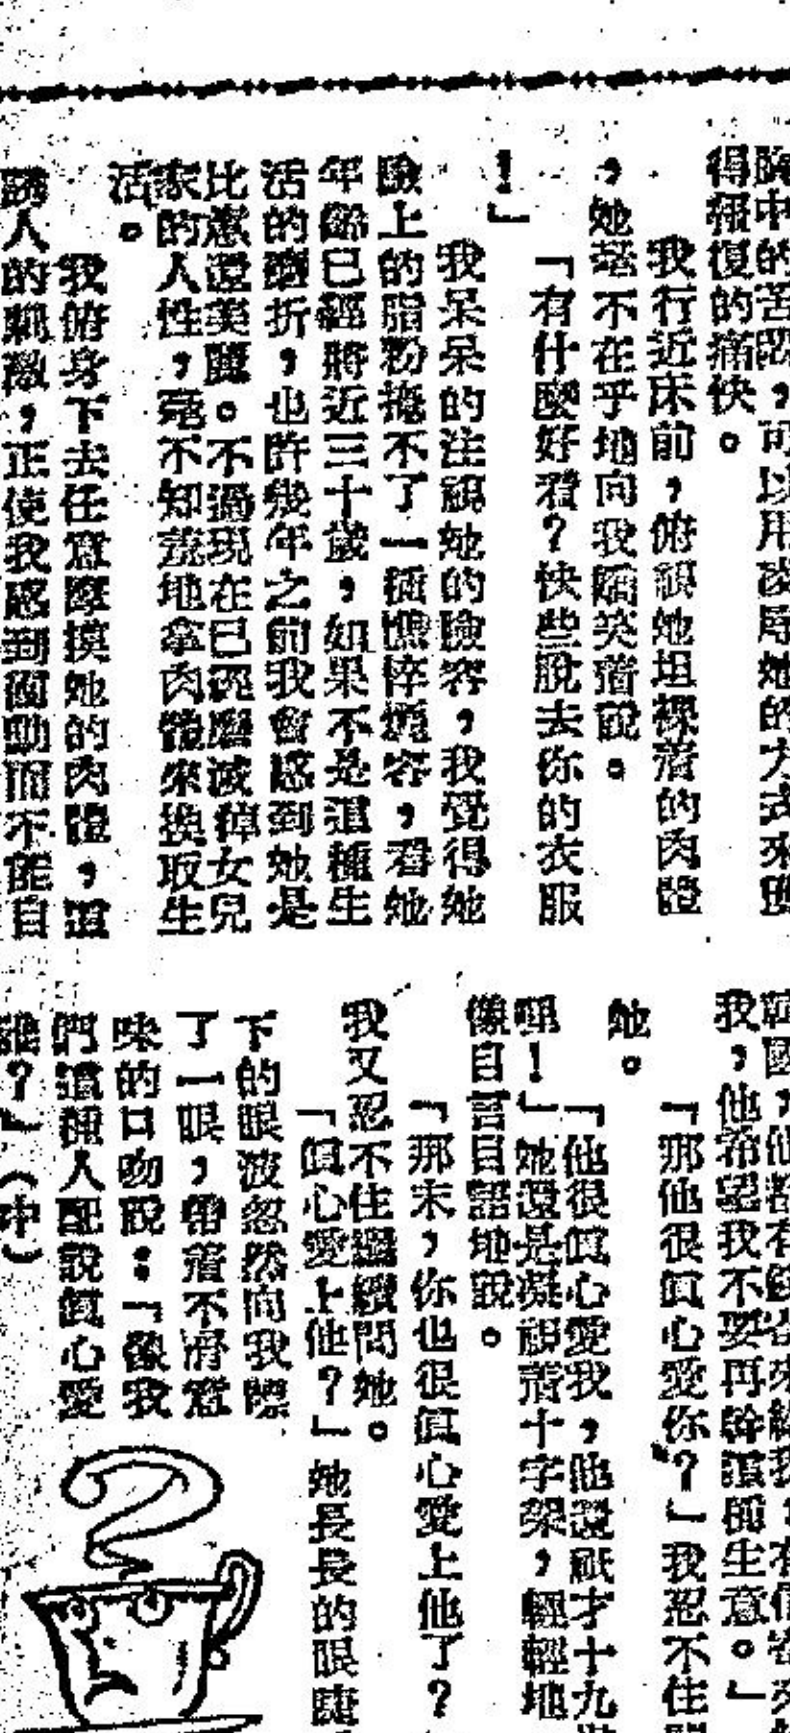 胸中的苦悶，可以用凌辱她的方式來獲
得報復的痛快。
我行近床前，俯視她坦裸着的肉體
，她毫不在乎地向我嬌笑着說。
「有什麼好看？快些脫去你的衣服
！」
我呆呆的注視她的臉容，我覺得她
臉上的脂粉掩不了一種憔悴的面容，看她
年齡已經將近三十歲，如果不是這種生
活的磨折，也許幾年之前我會感到她是
比蕙還美麗。不過現在已經磨滅掉女兒
家的人性，毫不知羞地拿肉體來換取生
活。
我俯身下去任意摩摸她的肉體，這
誘人的刺激，正使我感到衝動而不能自
韓國，他都有
我，他希望我不要再幹這種生意。」
「那他很眞心愛你？」我忍不住
她。
「他很眞心愛我，他還祇才十九
哩！」她還是凝視着十字架，輕輕地
像自言自語地說。
「那末，你也很眞心愛上他了？
我又忍不住繼續問她。
「眞心愛上他？」她長長的眼睫
下的眼波忽然向我瞟
了一眼，帶着不屑意
味的口吻說：「像我
們這種人配說眞心愛
誰？」（中）